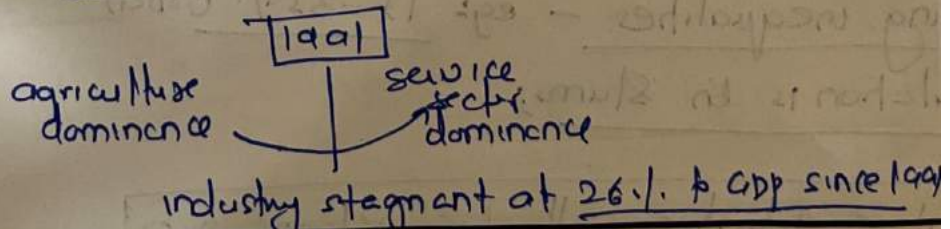 1991
agriculture
dominance
service
sector
dominance
industry stagnant at 26% to GDP since 1991